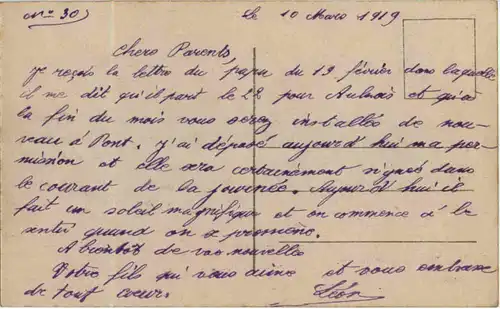 N° 30)
Le 10 Mars 1919
Chers Parents,
Je reçois la lettre du papa du 13 février dans laquelle
il me dit qu'il part le 22 pour Aulnois et qu'à
la fin du mois vous serez installés de nou-
veau à Pont. J'ai déposé aujourd'hui ma per-
mission et elle sera certainement signée dans
le courant de la journée. Aujourd'hui il
fait un soleil magnifique et on commence à le
sentir quand on se promène.
A bientôt de vos nouvelles
Votre fils qui vous aime et vous embrasse
de tout coeur.
Léon